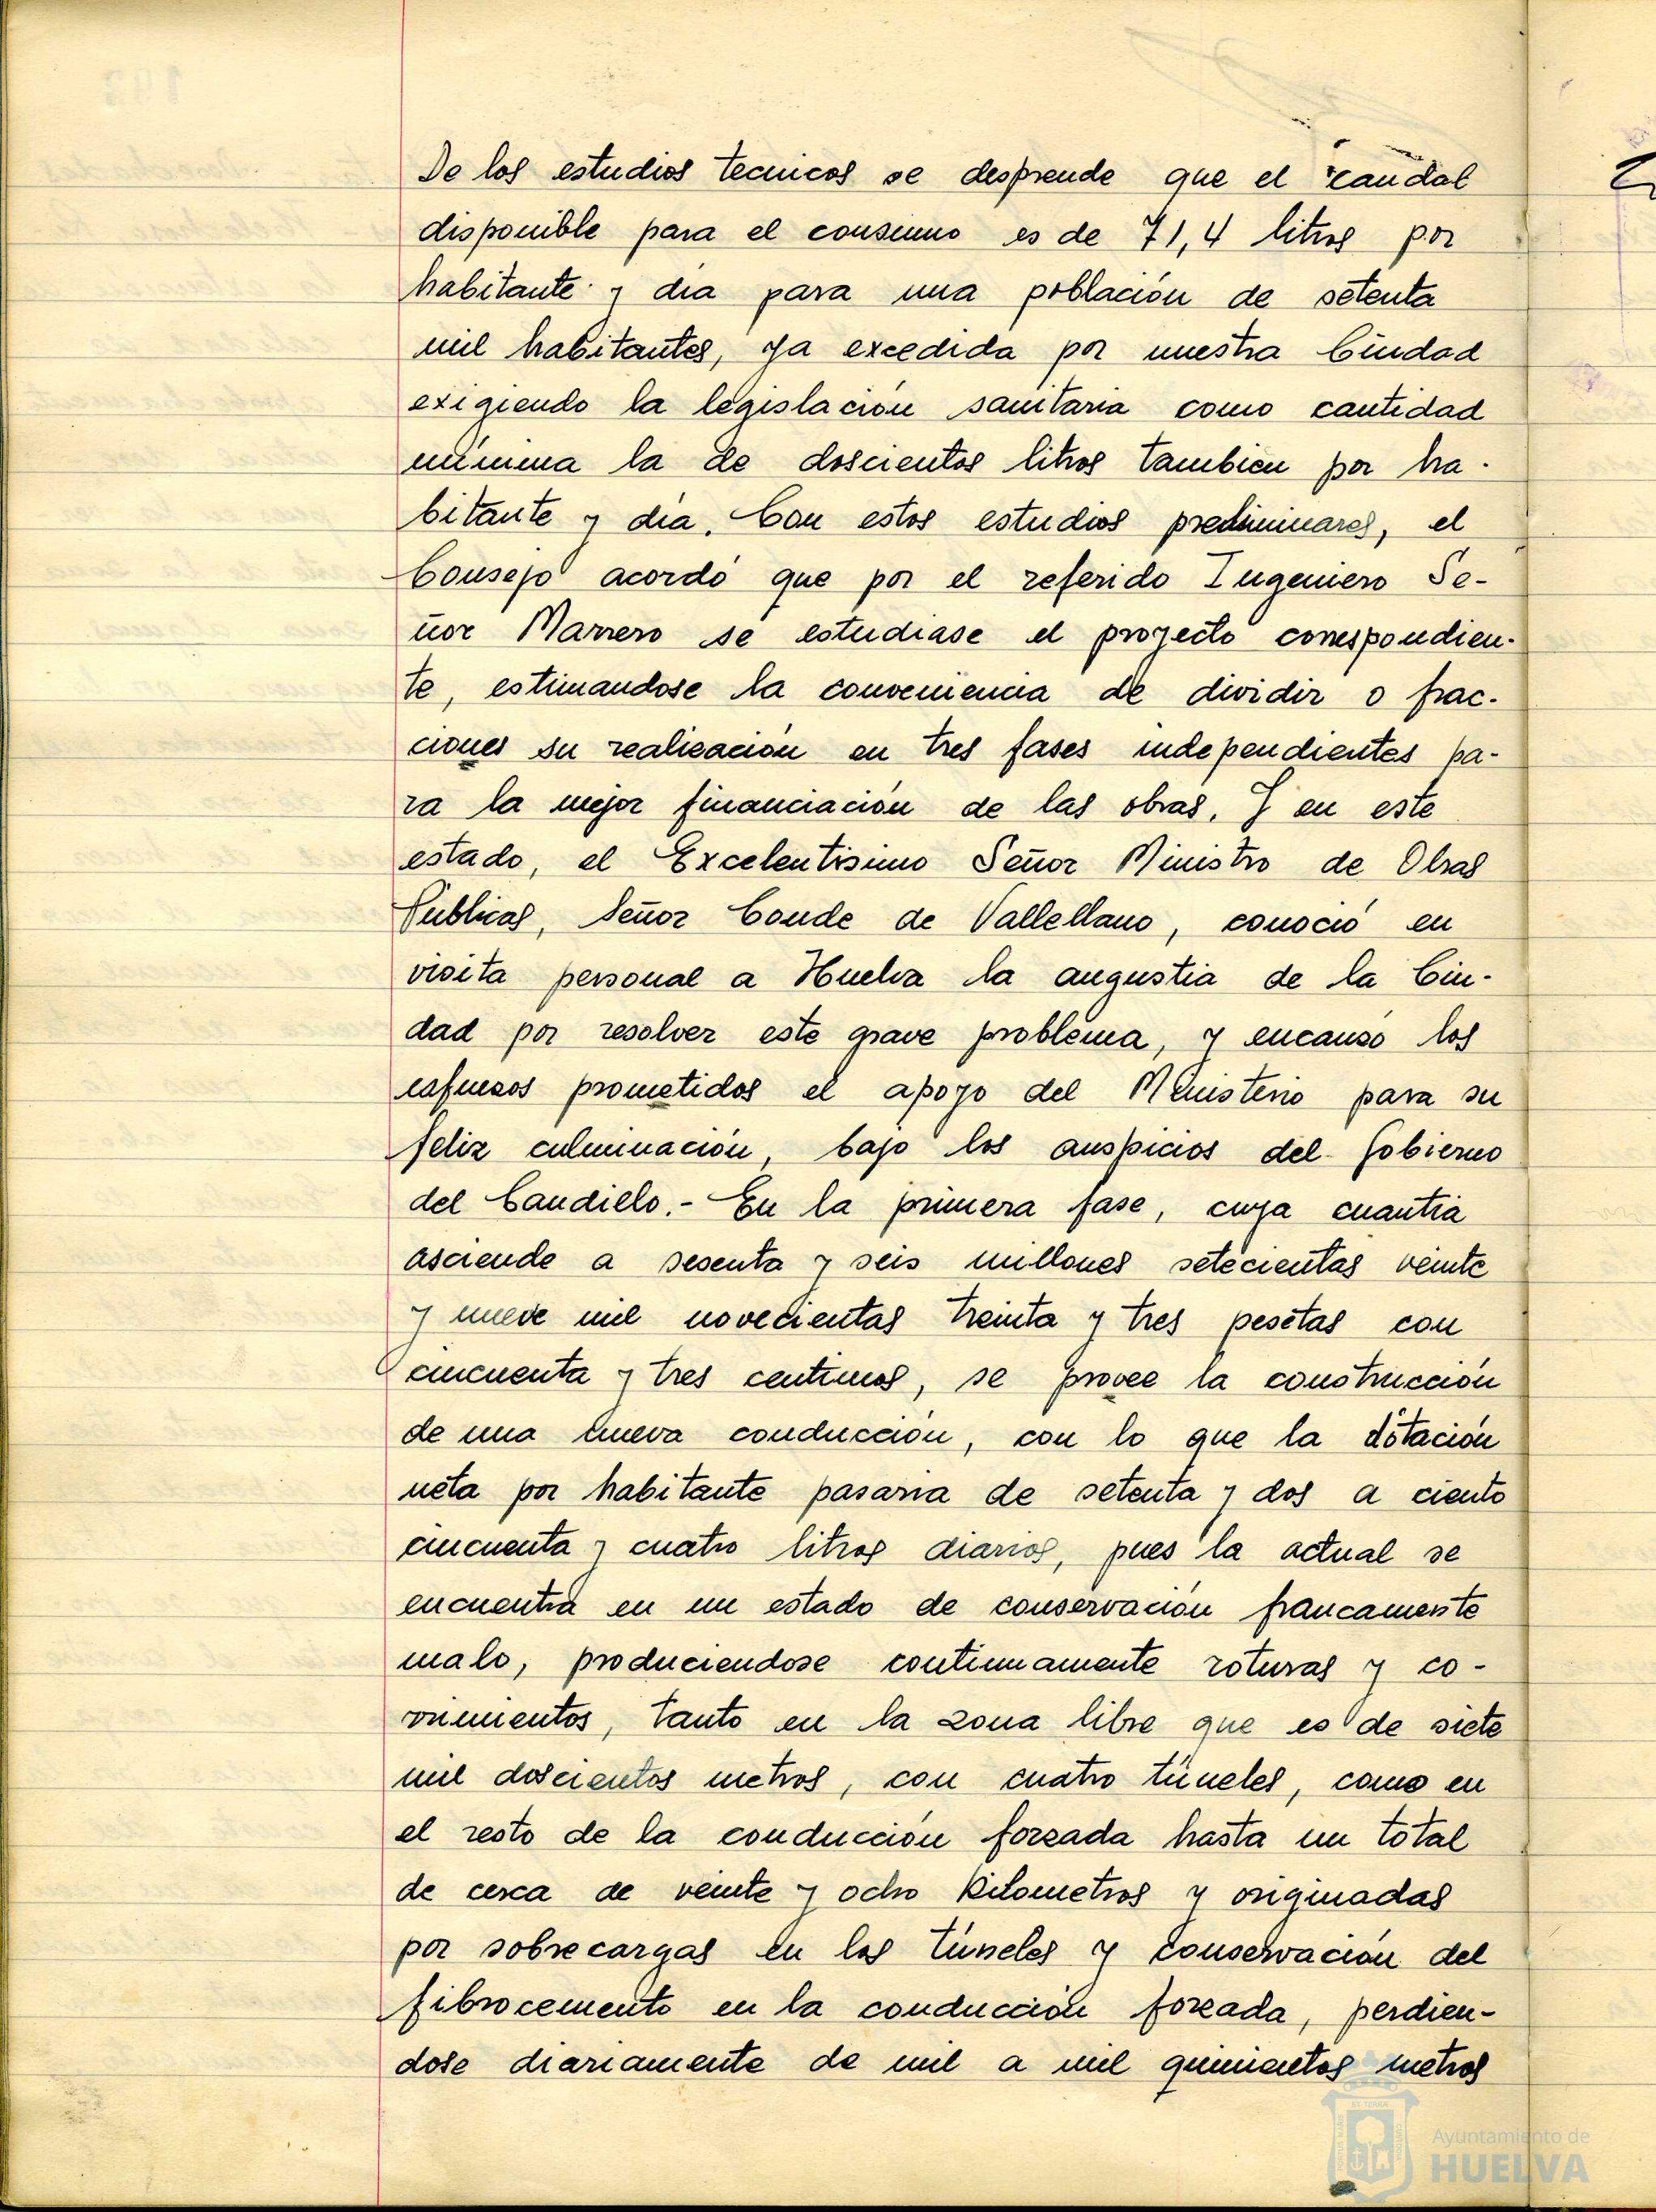 De los estudios tecnicos se desprende que el caudal
disponible para el consumo es de 71,4 litros por
habitante y dia para una población de setenta
mil habitantes, ya excedida por nuestra Ciudad
exigiendo la legislación sanitaria como cantidad
minima la de doscientos litros tambien por ha-
bitante y dia. Con estos estudios preliminares, el
Consejo acordó que por el referido Ingeniero Se-
ñor Marrero se estudiase el proyecto correspondien-
te, estimandose la conveniencia de dividir o frac-
ciones su realización en tres fases independientes pa-
ra la mejor financiación de las obras. Y en este
estado, el Excelentisimo Señor Ministro de Obras
Públicas, Señor Conde de Vallellano, conoció en
visita personal a Huelva la angustia de la Ciu-
dad por resolver este grave problema, y encauso los
esfuesos prometidos el apoyo del Ministerio para su
feliz culminación, bajo los auspicios del Gobierno
del Caudillo.- En la primera fase, cuya cuantia
asciende a sesenta y seis millones setecientas veinte
y nueve mil novecientas treinta y tres pesetas con
cincuenta y tres centimos, se provee la construcción
de una nueva conducción, con lo que la dotación
neta por habitante pasaria de setenta y dos a ciento
cincuenta y cuatro litros diarios, pues la actual se
encuentra en un estado de conservación francamente
malo, produciendose continuamente roturas y co-
rrimientos, tanto en la zona libre que es de siete
mil doscientos metros, con cuatro túneles, como en
el resto de la conducción forzada hasta un total
de cerca de veinte y ocho Kilometros y originadas
por sobrecargas en los túneles y conservación del
fibrocemento en la conducción forzada, perdien-
dose diariamente de mil a mil quinientos metros
Ayuntamiento de
HUELVA